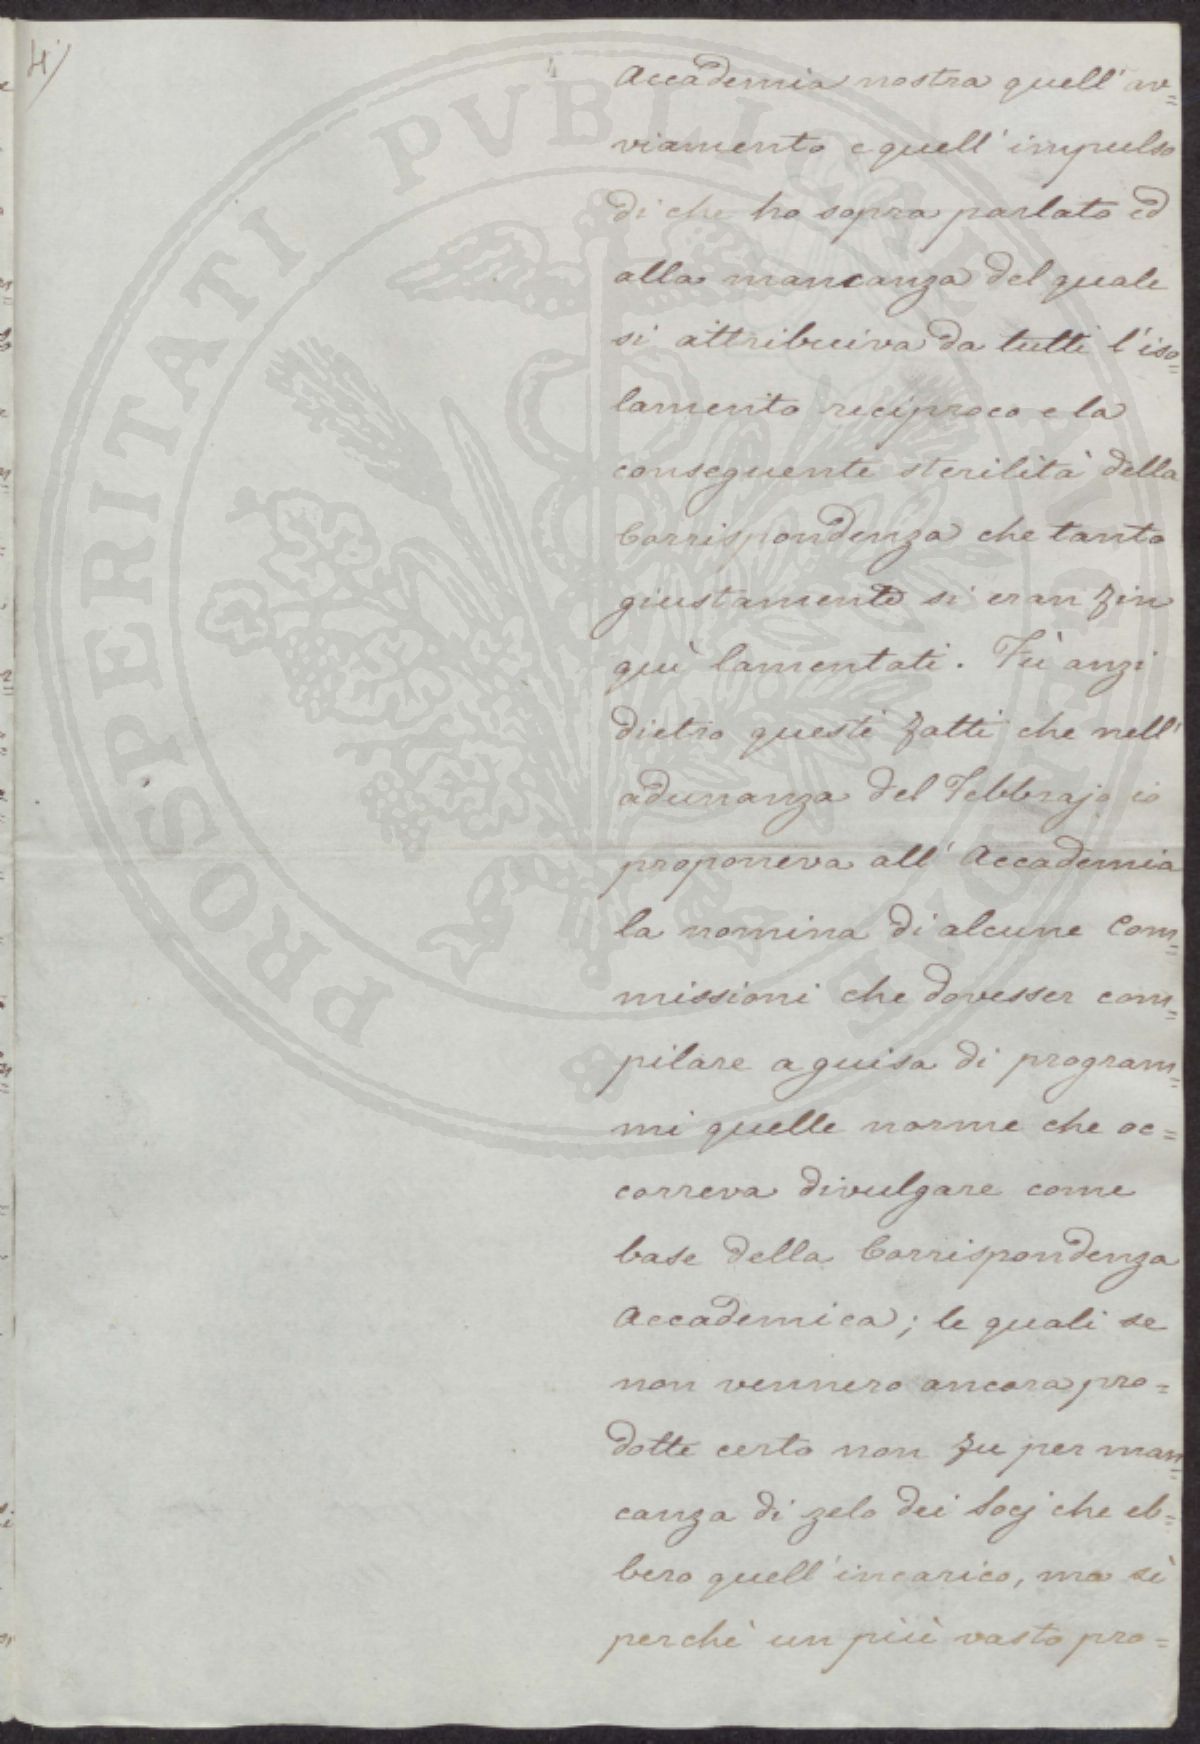 4/
Accademia nostra quell' av=
viamento e quell' impulso
di che ho sopra parlato ed
alla mancanza del quale
si attribuiva da tutti l'iso=
lamento reciproco e la
conseguente sterilità della
Corrispondenza che tanto
giustamente si eran fin
quì lamentati. Fù anzi
dietro questi fatti che nell'
adunanza del Febbrajo io
proponeva all' Accademia
la nomina di alcune Com=
missioni che dovesser com=
pilare a guisa di program=
mi quelle norme che oc=
correva divulgare come
base della Corrispondenza
Accademica; le quali se
non vennero ancora pro=
dotte certo non fu per man=
canza di zelo dei Socj che eb=
bero quell'incarico, ma sì
perchè un più vasto pro=
PROSPERITATI PVBLICAE AVGENDAE